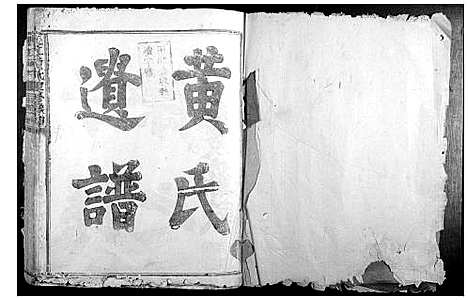 黃氏
遺譜